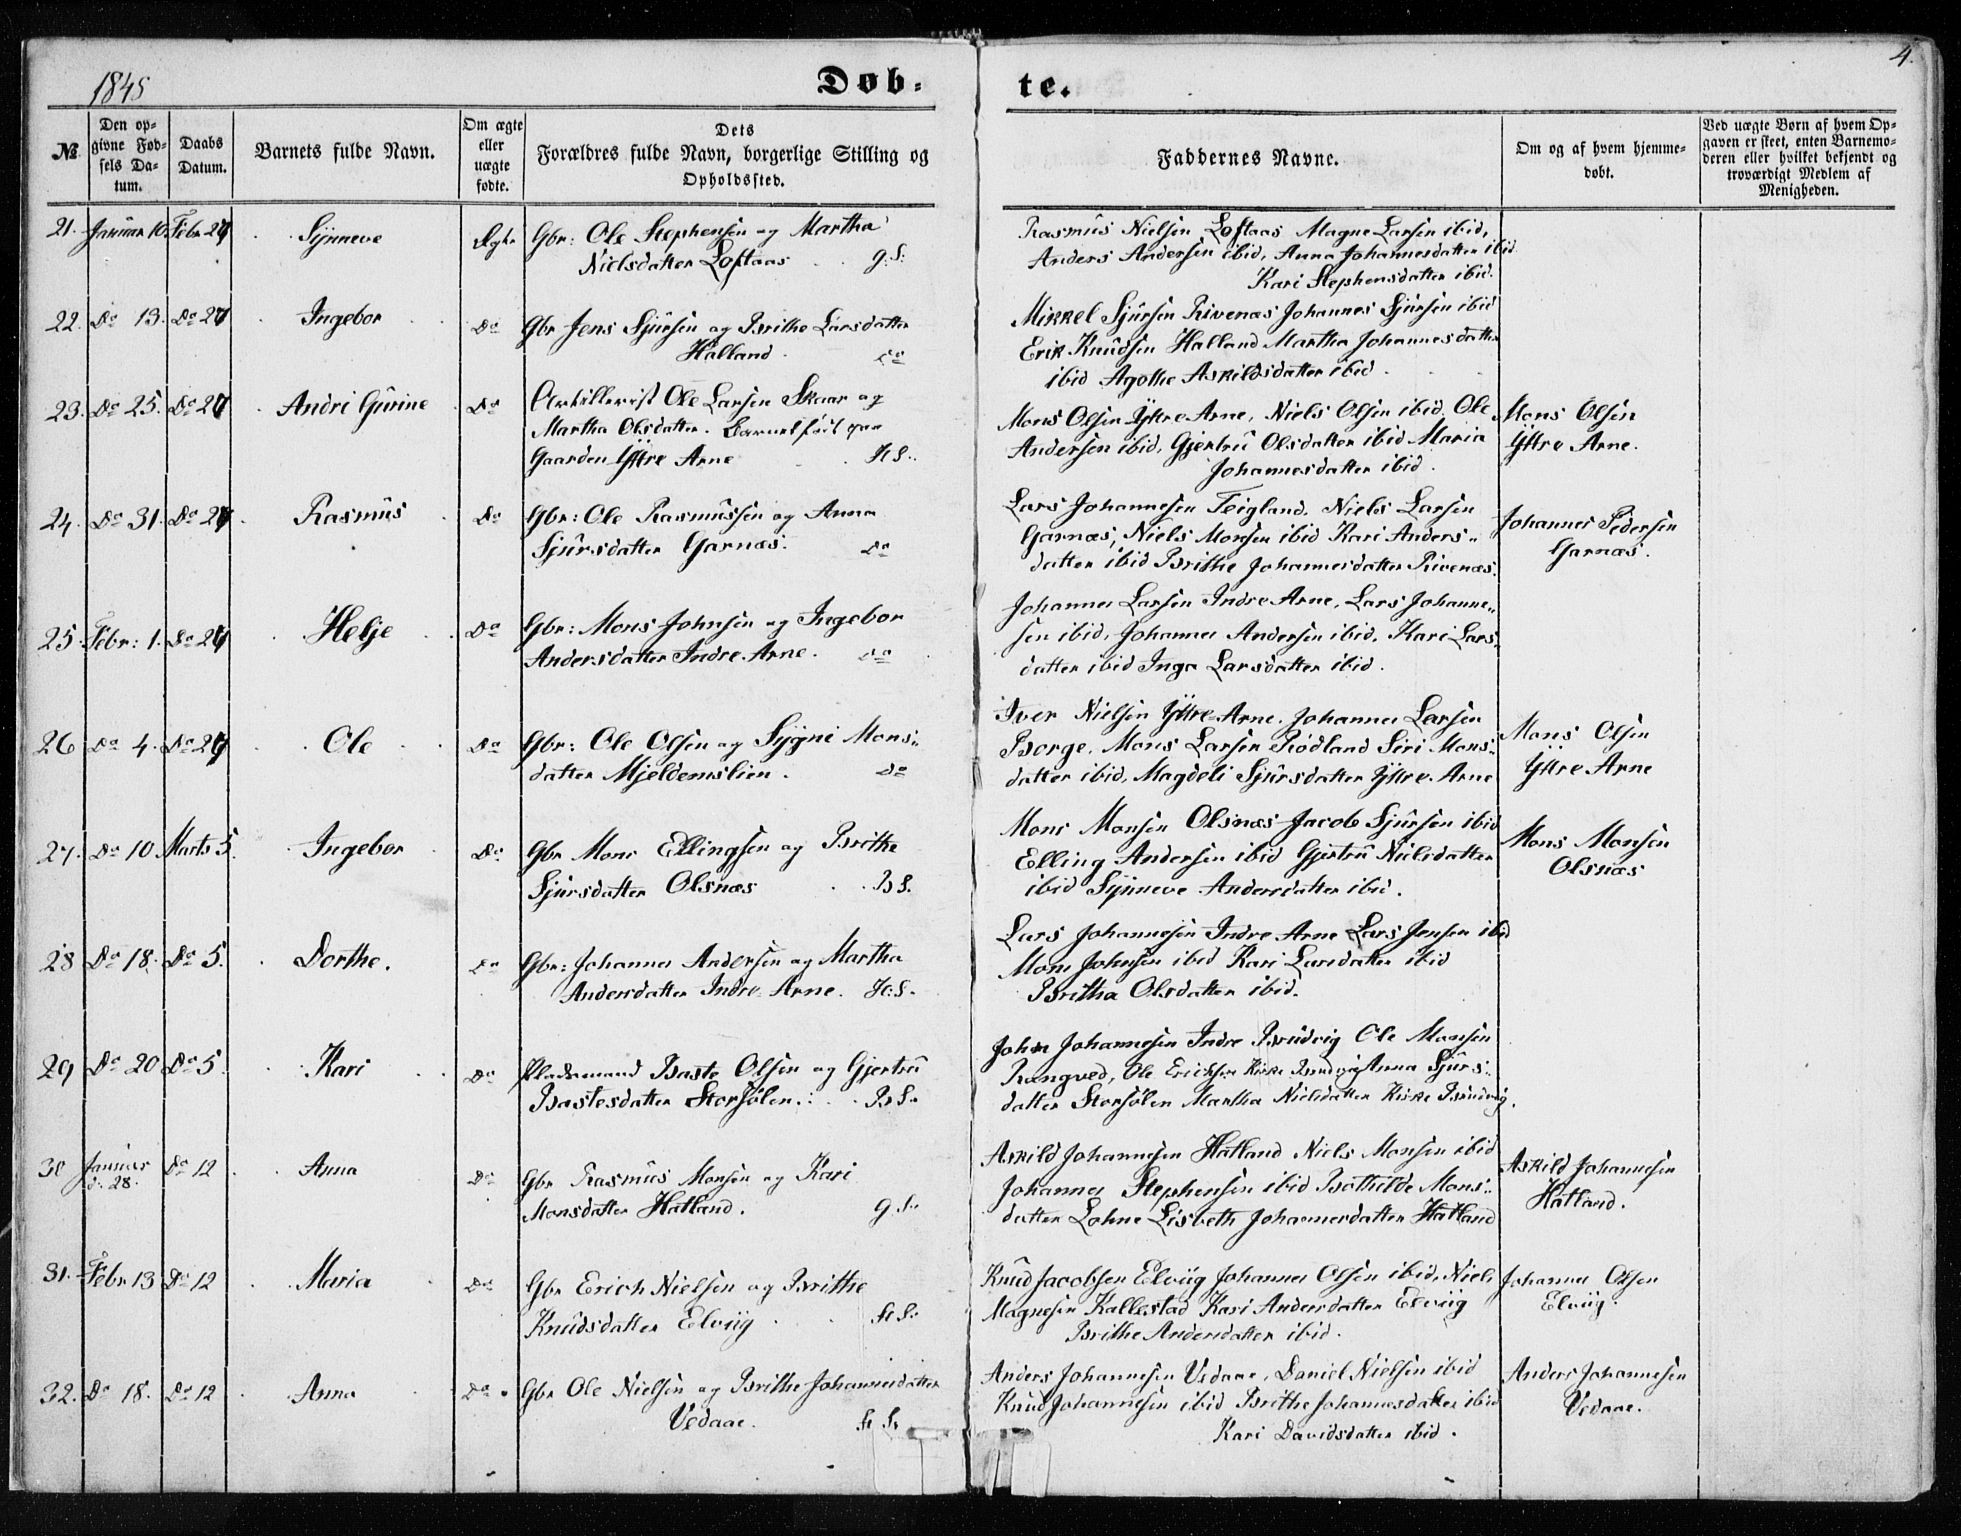 4.
1845
Døb-
te.
№
Den op-
givne Fød-
sels Da-
tum.
Daabs
Datum.
Barnets fulde Navn.
Om ægte
eller
uægte
fødte.
Dets
Forældres fulde Navn, borgerlige Stilling og
Opholdssted.
Faddernes Navne.
Om og af hvem hjemme-
døbt.
Ved uægte Børn af hvem Op-
gaven er skeet, enten Barnemo-
deren eller hvilket bekjendt og
troværdigt Medlem af
Menigheden.
21. Januar 10. Febr 24 Synneve Ægte Gbr: Ole Stephensen og Martha
Nielsdatter Loftaas G: S:
Rasmus Nielsen Loftaas Magne Larsen ibid,
Anders Andersen ibid, Anna Johannesdatter ibid
Kari Stephensdatter ibid.
22. Do 13. Do 24 Ingebor Do Gbr Jens Sjursen og Brithe Larsdatter
Halland. Do
Mikkel Sjursen Rivenæs Johannes Sjursen ibid
Erik Knudsen Halland Martha Johannesdatter
ibid Agothe Askildsdatter ibid.
23. Do 25. Do 24 Andri Gurine Do Artillerist Ole Larsen Skaar og
Martha Olsdatter. Barnet født paa
Gaarden Yttre Arne H S.
Mons Olsen Yttre Arne, Niels Olsen ibid, Ole
Andersen ibid, Gjertru Olsdatter ibid Maria
Johannesdatter ibid.
Mons Olsen
Yttre Arne.
24. Do 31. Do 24 Rasmus Do Gbr: Ole Rasmussen og Anna
Sjursdatter Garnæs. Do
Lars Johannesen Teigland. Niels Larsen
Garnæs, Niels Monsen ibid Kari Anders-
datter ibid Brithe Johannesdatter Rivenæs.
Johannes Pedersen
Garnæs.
25. Febr: 1. Do 24 Helje Do Gbr: Mons Johnsen og Ingebor
Andersdatter Indre Arne. Do
Johannes Larsen Indre Arne, Lars Johanne-
sen ibid, Johannes Andersen ibid, Kari Lars-
datter ibid Inga Larsdatter ibid.
26 Do 4. Do 24 Ole Do Gbr: Ole Olsen og Sygni Mons-
datter Mjeldemslien. Do
Iver Nielsen Yttre Arne. Johannes Larsen
Borge. Mons Larsen Rødland Siri Mons-
datter ibid, Magdeli Sjursdatter Yttre Arne
Mons Olsen
Yttre Arne
27. Do 10. Marts 5. Ingebor Do Gbr Mons Ellingsen og Brithe
Sjursdatter Olsnæs B S.
Mons Monsen Olsnæs Jacob Sjursen ibid
Elling Andersen ibid Gjertru Nielsdatter
ibid Synneve Andersdatter ibid.
Mons Monsen
Olsnæs
28 Do 18. Do 5. Dorthe. Do Gbr: Johannes Andersen og Martha
Andersdatter Indre Arne. H. S.
Lars Johannesen Indre Arne Lars Jensen ibid
Mons Johnsen ibid Kari Larsdatter ibid
Britha Olsdatter ibid.
29 Do 20 Do 5. Kari Do Pladsmand Baste Olsen og Gjertru
Bastesdatter Storsølen. B S.
John Johannesen Indre Brudvig Ole Monsen
Rongved, Ole Erichsen Kirke Brudvig Anna Sjurs-
datter Storsølen Martha Nielsdatter Kirke Brudvig.
30 Januar d. 28. Do 12 Anna Do Gbr Rasmus Monsen og Kari
Monsdatter Hatland. G. S.
Askild Johannesen Hatland Niels Monsen ibid
Johannes Stephensen ibid Bothilde Mons-
datter Lohne Lisbeth Johannesdatter Hatland
Askild Johannesen
Hatland.
31. Febr 13 Do 12 Maria Do Gbr Erich Nielsen og Brithe
Knudsdatter Elviig H S.
Knud Jacobsen Elviig Johannes Olsen ibid, Niels
Magnesen Kallestad Kari Andersdatter Elviig
Brithe Andersdatter ibid.
Johannes Olsen
Elviig.
32. Do 18. Do 12 Anna Do Gbr Ole Nielsen og Brithe Johannesdatter
Vedaae. H S.
Anders Johannesen Vedaae, Daniel Nielsen ibid
Knud Johannesen ibid Brithe Johannesdatter ibid
Kari Davidsdatter ibid.
Anders Johannesen
Vedaae.